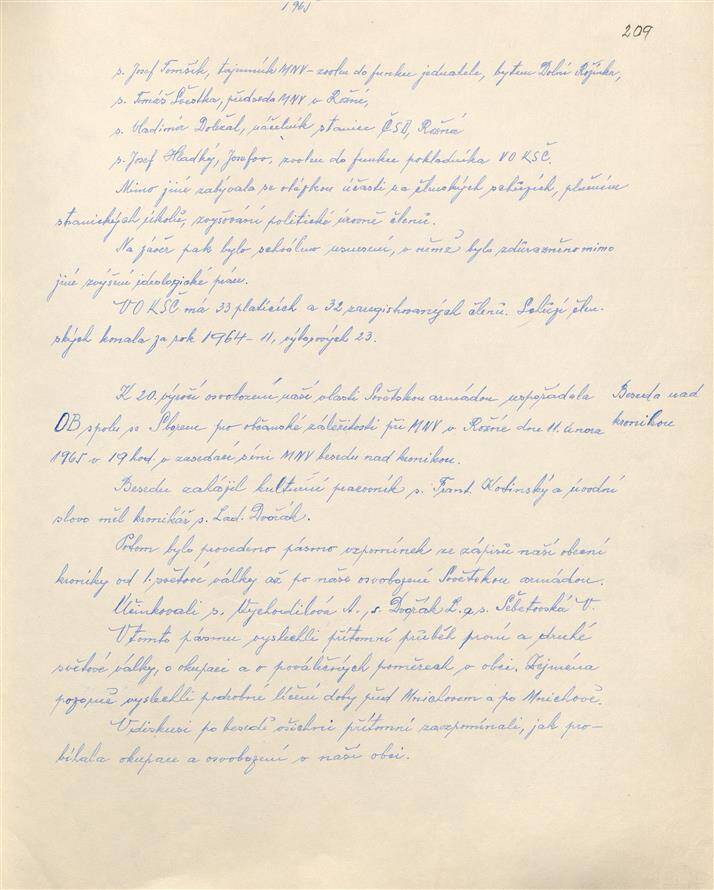 1965
209
s. Josef Tomšík, tajemník MNV - zvolen do funkce jednatele, bytem Dolní Rožínka,
s. Tomáš Šustka, předseda MNV v Rožné,
s. Vladimír Doležal, náčelník stanice ČSD, Rožná
s. Josef Hladký, Josefov, zvolen do funkce pokladníka VO KSČ.
Mimo jiné zabývala se otázkou účasti na členských schůzích, plněním
stranických úkolů, zvyšování politické úrovně členů.
Na závěr pak bylo schváleno usnesení, v němž bylo zdůrazněno mimo
jiné zvýšení ideologické práce.
VO KSČ má 33 platících a 32 zaregistrovaných členů. Schůzí člen-
ských konala za rok 1964 - 11, výborových 23.
K 20. výročí osvobození naší vlasti Sovětskou armádou uspořádala
Beseda nad
OB spolu se Sborem pro občanské záležitosti při MNV v Rožné dne 11. února
kronikou
1965 v 19 hod. v zasedací síni MNV besedu nad kronikou.
Besedu zahájil kulturní pracovník s. Frant. Kotinský a úvodní
slovo měl kronikář s. Lad. Dvořák.
Potom bylo provedeno pásmo vzpomínek ze zápisů naší obecní
kroniky od 1. světové války až po naše osvobození Sovětskou armádou.
Účinkovali s. Vychodilová A., s. Dvořák L. a s. Šebetovská V.
V tomto pásmu vyslechli přítomní průběh první a druhé
světové války, o okupaci a o poválečných poměrech v obci. Zejména
pozorně vyslechli podrobné líčení doby před Mnichovem a po Mnichově.
V diskusi po besedě všichni přítomní zavzpomínali, jak pro-
bíhala okupace a osvobození v naší obci.